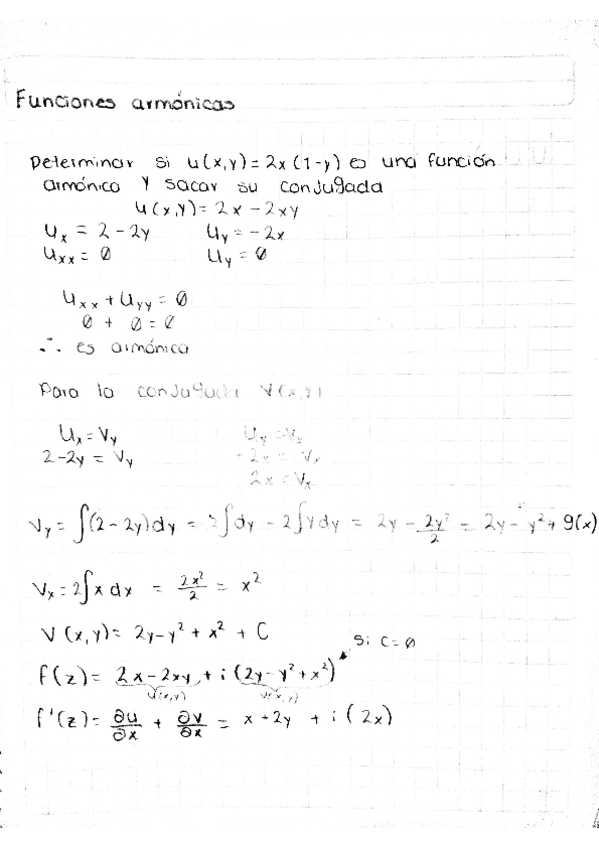 Funciones armónicas
Determinar si u(x,y) = 2x (1-y) es una función
armónica y sacar su conjugada
u(x,y) = 2x - 2xy
Ux = 2 - 2y    Uy = - 2x
Uxx = 0    Uy = 0
Uxx + Uyy = 0
0 + 0 = 0
∴ es armónica
Para la conjugada V(x,y)
Ux = Vy    Uy = Vx
2 - 2y = Vy    - 2x = Vx
2x = Vx
Vy = ∫(2 - 2y)dy = 2∫dy - 2∫ydy = 2y - 2y²/2 = 2y - y² + g(x)
Vx = 2∫x dx = 2x²/2 = x²
V(x,y) = 2y - y² + x² + C
Si C = 0
f(z) = 2x - 2xy + i (2y - y² + x²)
u(x,y)    v(x,y)
f'(z) = ∂u/∂x + ∂v/∂x = x + 2y + i (2x)